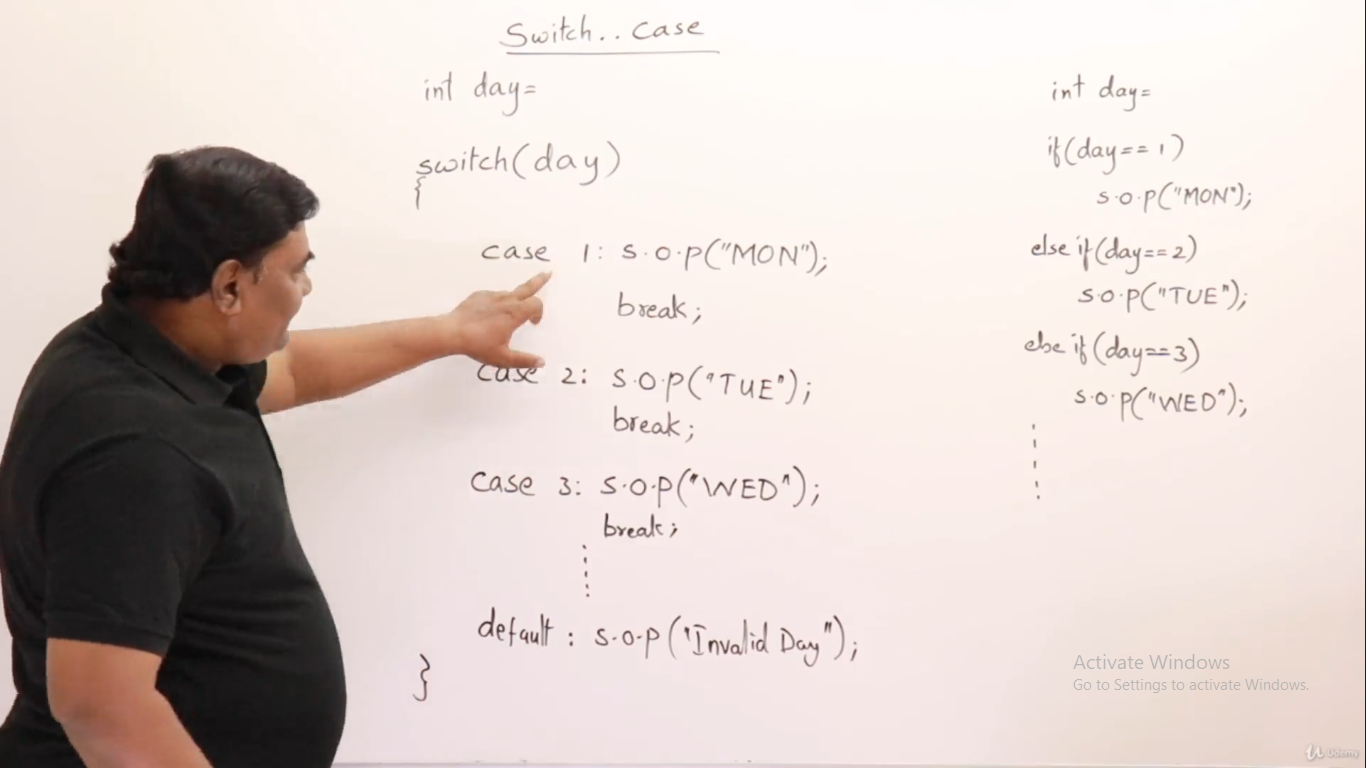 Switch.. Case
int day=
switch(day)
{
case 1: S.O.P("MON");
break;
case 2: S.O.P("TUE");
break;
Case 3: S.O.P("WED");
break;
default: S.O.P("Invalid Day");
}
int day=
if(day==1)
S.O.P("MON");
else if(day==2)
S.O.P("TUE");
else if(day==3)
S.O.P("WED");
Activate Windows
Go to Settings to activate Windows.
Udemy